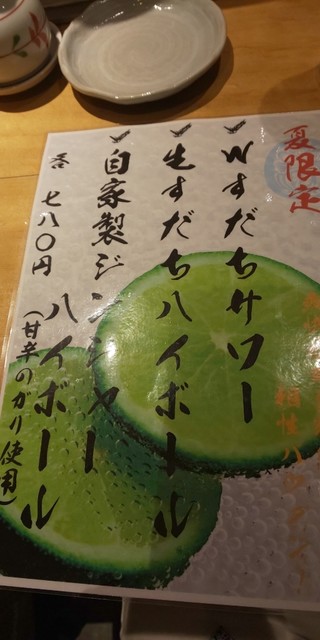 夏限定
Wすだちサワー
生すだちハイボール
自家製ジンジャー
ハイボール
(甘辛のガリ使用)
各 七八〇円